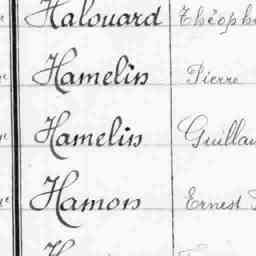 Halouard Théoph
Hamelin Pierre
Hamelin Guillau
Hamon Ernest